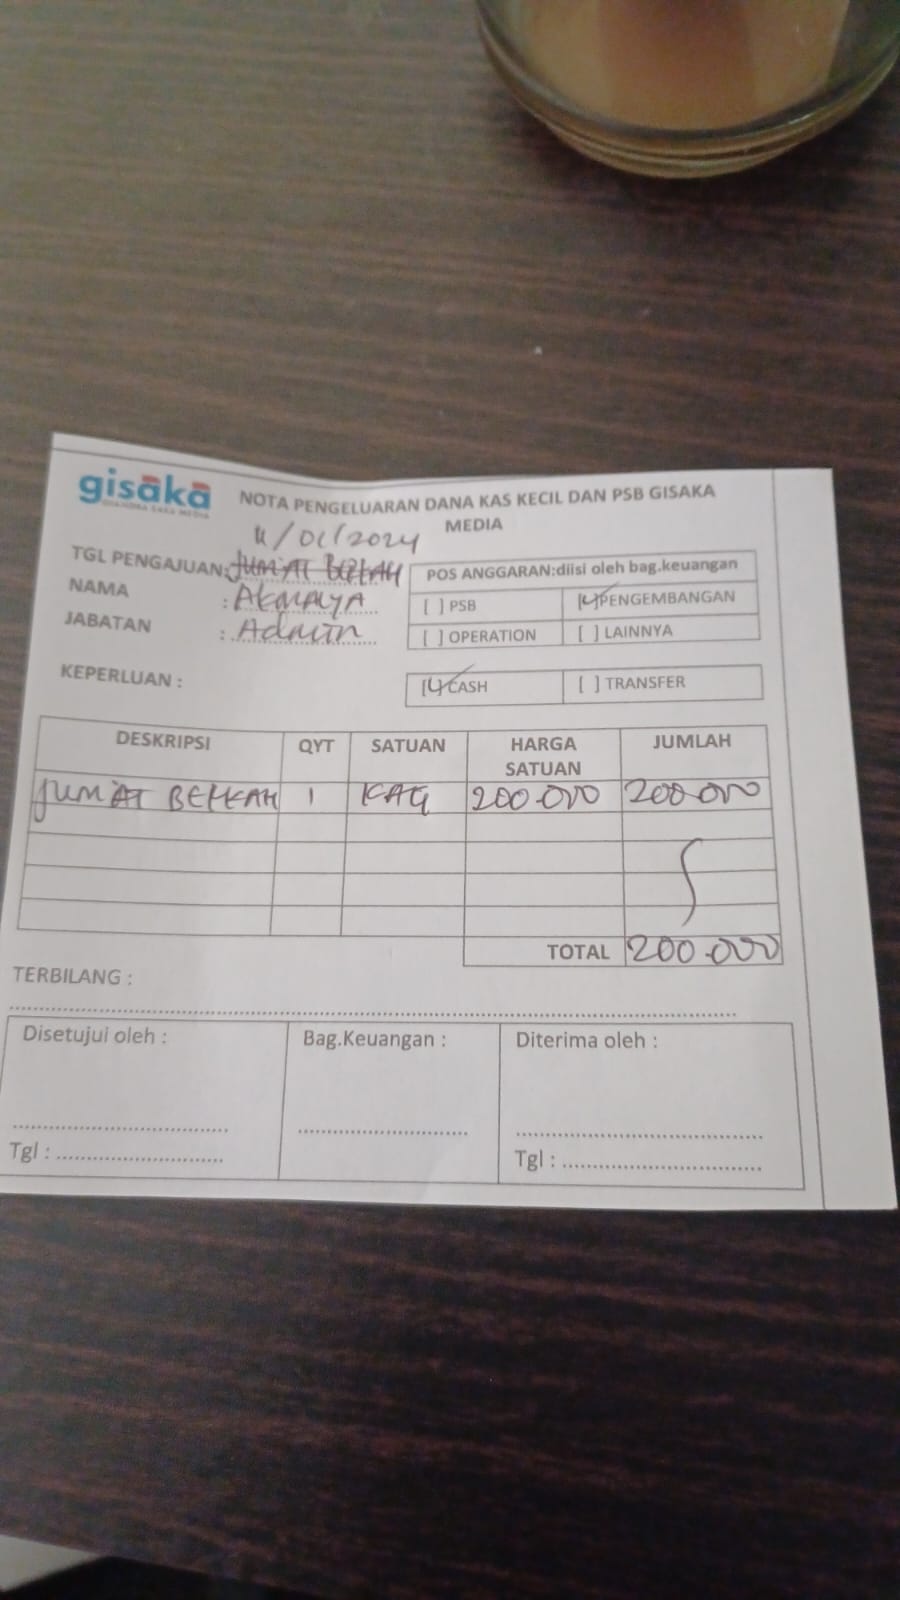 gisaka
NOTA PENGELUARAN DANA KAS KECIL DAN PSB GISAKA
MEDIA
TGL PENGAJUAN: JUM'AT BERKAH
/2024
NAMA :
JABATAN : Admin
POS ANGGARAN:diisi oleh bag.keuangan
[ ] PSB [✓] PENGEMBANGAN
[ ] OPERATION [ ] LAINNYA
KEPERLUAN :
[✓] CASH [ ] TRANSFER
DESKRIPSI QYT SATUAN HARGA SATUAN JUMLAH
JUM'AT BERKAH 1 200.000 200.000
TOTAL 200.000
TERBILANG :
Disetujui oleh : Bag.Keuangan : Diterima oleh :
Tgl : Tgl :